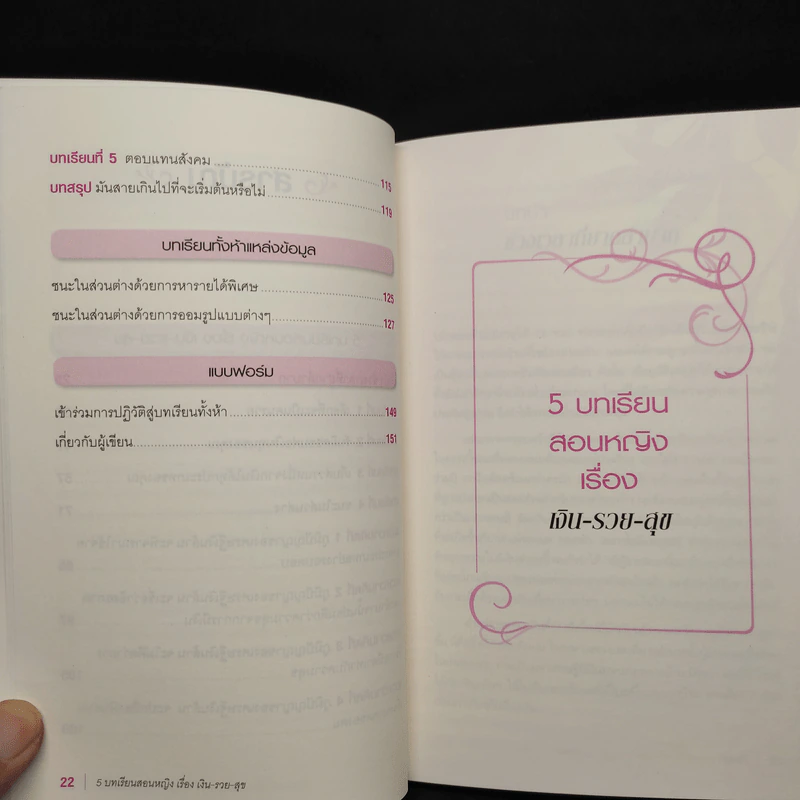 บทเรียนที่ 5 ตอบแทนสังคม 115
บทสรุป มันสายเกินไปที่จะเริ่มต้นหรือไม่ 119
บทเรียนทั้งห้าแหล่งข้อมูล
ชนะในส่วนต่างด้วยการหารายได้พิเศษ 125
ชนะในส่วนต่างด้วยการออมรูปแบบต่างๆ 127
แบบฟอร์ม
เข้าร่วมการปฏิวัติสู่บทเรียนทั้งห้า 149
เกี่ยวกับผู้เขียน 151
22 5 บทเรียนสอนหญิง เรื่อง เงิน-รวย-สุข
5 บทเรียน
สอนหญิง
เรื่อง
เงิน-รวย-สุข